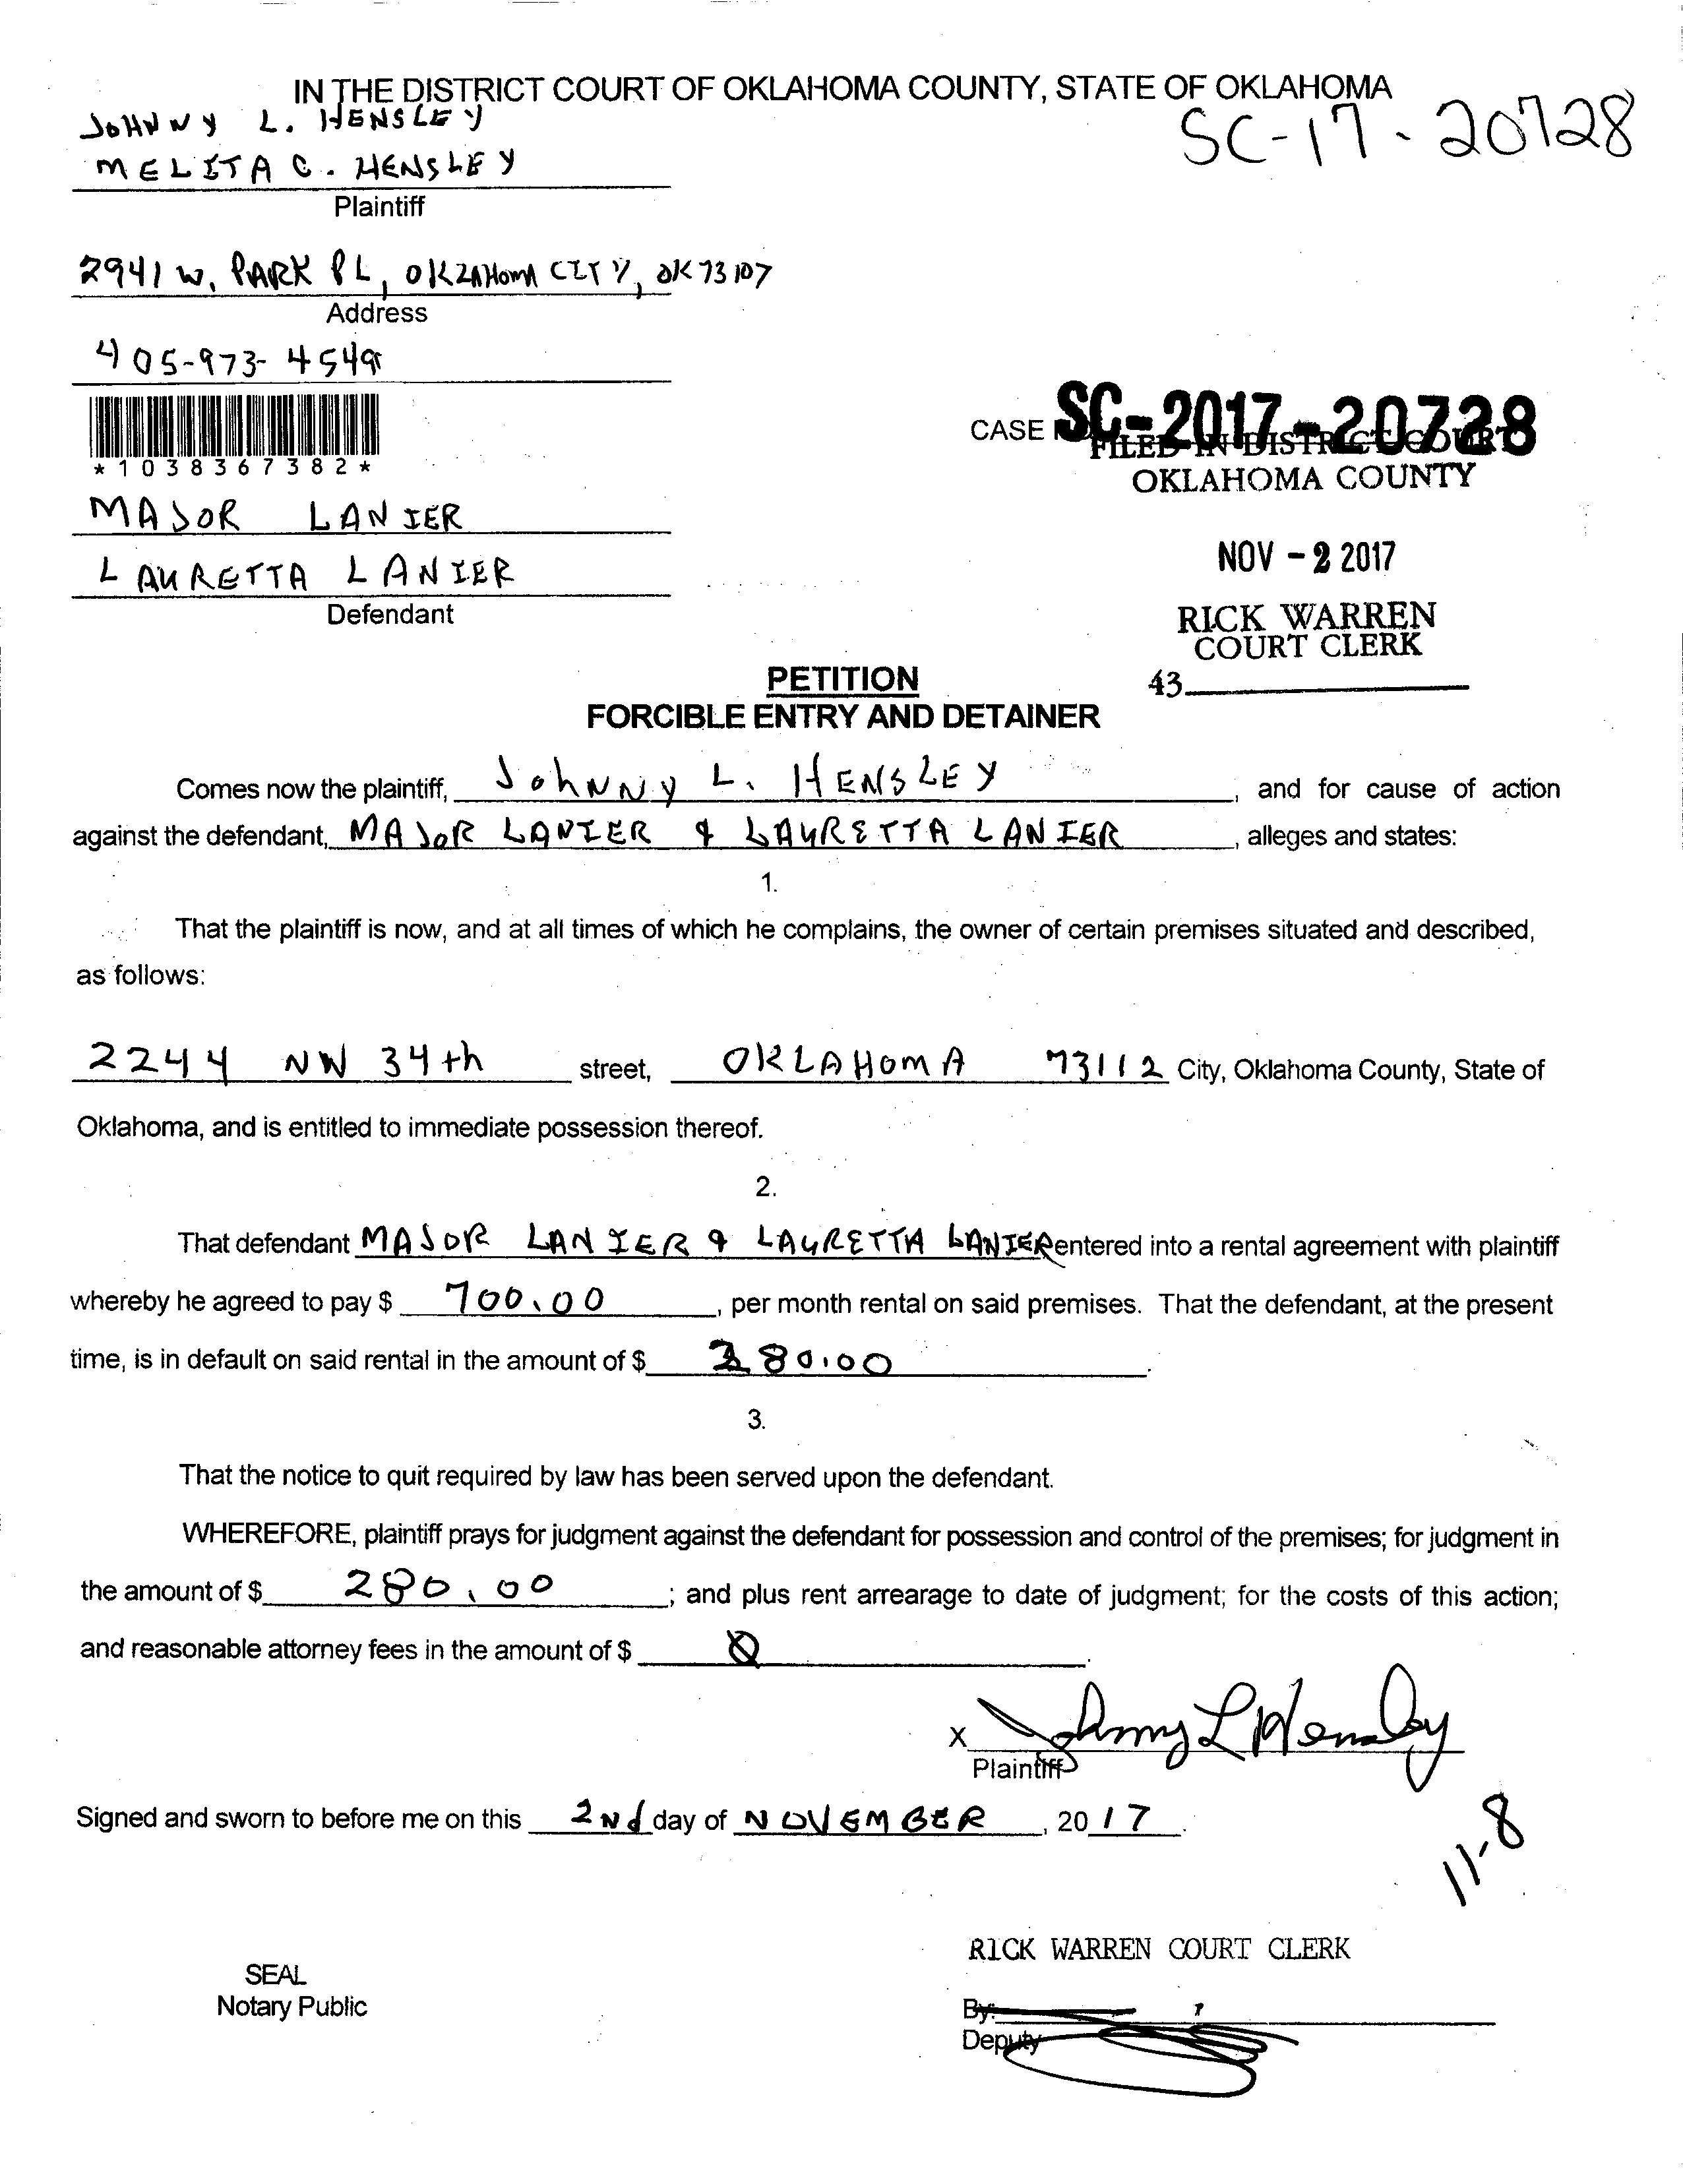 IN THE DISTRICT COURT OF OKLAHOMA COUNTY, STATE OF OKLAHOMA
JOHNNY L. HENSLEY
SC-17-20728
MELITA C. HENSLEY
Plaintiff
2941 W. PARK PL, OKLAHOMA CITY, OK 73107
Address
405-973-4549
CASE SC-2017-20728
FILED IN DISTRICT COURT
*1038367382*
OKLAHOMA COUNTY
MAJOR LANIER
NOV -2 2017
LAURETTA LANIER
Defendant
RICK WARREN
COURT CLERK
43
PETITION
FORCIBLE ENTRY AND DETAINER
Comes now the plaintiff, Johnny L. HENSLEY, and for cause of action
against the defendant, MAJOR LANIER & LAURETTA LANIER, alleges and states:
1.
That the plaintiff is now, and at all times of which he complains, the owner of certain premises situated and described,
as follows:
2244 NW 34th street, OKLAHOMA 73112 City, Oklahoma County, State of
Oklahoma, and is entitled to immediate possession thereof.
2.
That defendant MAJOR LANIER & LAURETTA LANIER entered into a rental agreement with plaintiff
whereby he agreed to pay $ 700.00, per month rental on said premises. That the defendant, at the present
time, is in default on said rental in the amount of $ 280.00.
3.
That the notice to quit required by law has been served upon the defendant.
WHEREFORE, plaintiff prays for judgment against the defendant for possession and control of the premises; for judgment in
the amount of $ 280.00; and plus rent arrearage to date of judgment; for the costs of this action;
and reasonable attorney fees in the amount of $ 0.
X Johnny L Hensley
Plaintiff
Signed and sworn to before me on this 2Nd day of NOVEMBER, 2017.
11-8
RICK WARREN COURT CLERK
SEAL
Notary Public
By:
Deputy